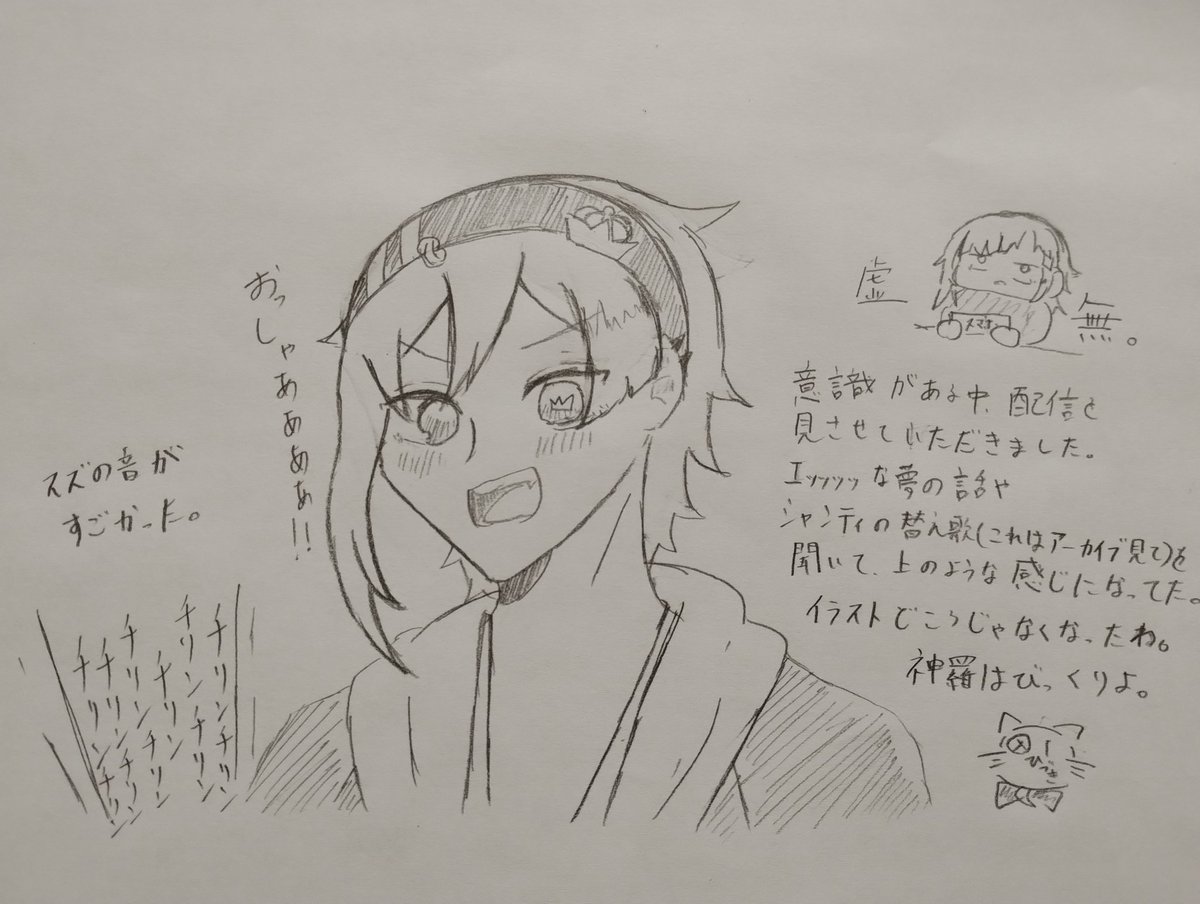 おっしゃあああぁ!!
スズの音が
すごかった。
チリン チリンチリン チリンチリン チリン チリン チリン チリンチリン
虚 無。
スマホ
意識がある中、配信を
見させていただきました。
エッッッッな夢の話や
シャンティの替え歌(これはアーカイブ見て)を
聞いて、上のような感じになってた。
イラストどころじゃなくなったね。
神羅はびっくりよ。